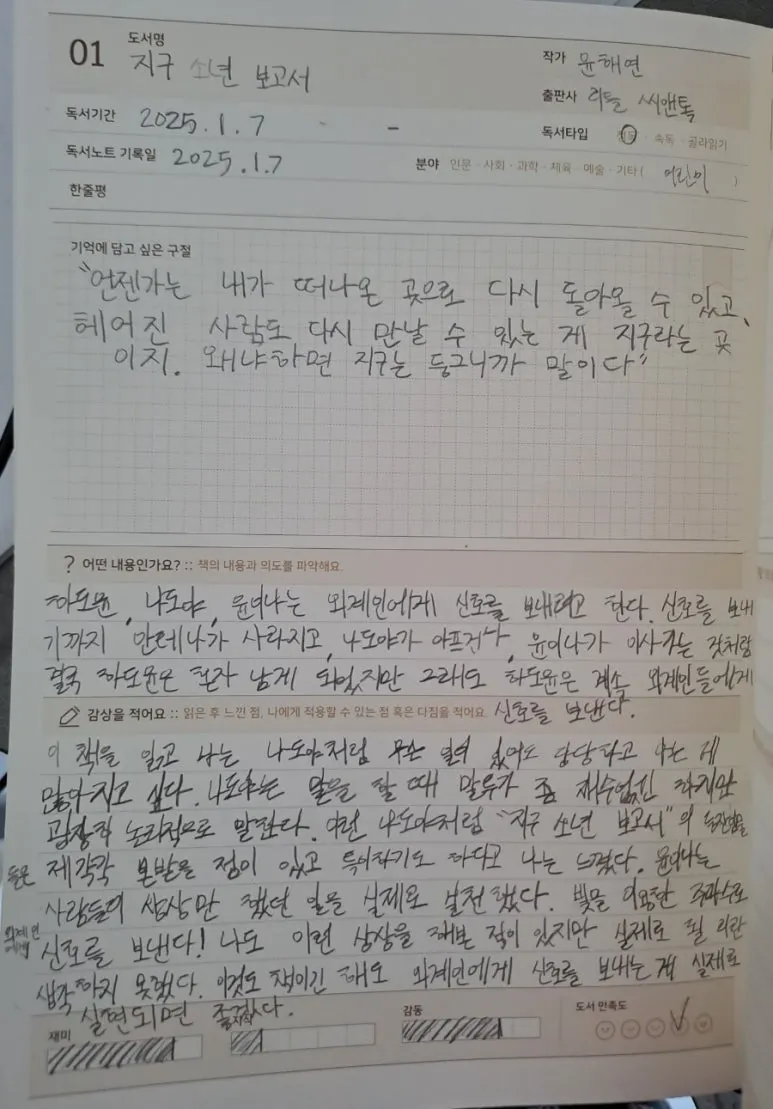 01
도서명
지구 소년 보고서
작가 윤해연
출판사 리틀 씨앤톡
독서기간 2025.1.7 -
독서타입 정독 · 속독 · 골라읽기
독서노트 기록일 2025.1.7
분야 인문 · 사회 · 과학 · 체육 · 예술 · 기타 ( 어린이 )
한줄평
기억에 담고 싶은 구절
"언젠가는 내가 떠나온 곳으로 다시 돌아올 수 있고,
헤어진 사람도 다시 만날 수 있는 게 지구라는 곳
이지. 왜냐하면 지구는 둥그니까 말이다"
? 어떤 내용인가요? :: 책의 내용과 의도를 파악해요.
하도윤, 나도야, 윤이나는 외계인에게 신호를 보내려고 한다. 신호를 보내
기까지 안테나가 사라지고, 나도야가 아프거나, 윤이나가 이사가는 것처럼
결국 하도윤은 혼자 남게 되었지만 그래도 하도윤은 계속 외계인들에게
신호를 보낸다.
감상을 적어요 :: 읽은 후 느낀 점, 나에게 적용할 수 있는 점 혹은 다짐을 적어요.
이 책을 읽고 나는 나도야처럼 무슨 일이 있어도 당당하고 나은 게
많아지고 싶다. 나도야는 말을 할 때 말투가 좀 재수없긴 하지만
굉장히 논리적으로 말한다. 이런 나도야처럼 "지구 소년 보고서"의
들은 제각각 본받을 점이 있고 특이하기도 하다고 나는 느꼈다. 윤이나는
사람들의 상상만 했던 일을 실제로 실천했다. 빛을 이용한 주파수로
외계인에게 신호를 보낸다! 나도 이런 상상을 해본 적이 있지만 실제로 될 거란
생각하지 못했다. 이것도 책이긴 해도 외계인에게 신호를 보내는 게 실제로
실현되면 좋겠다.
재미
지식
감동
도서 만족도